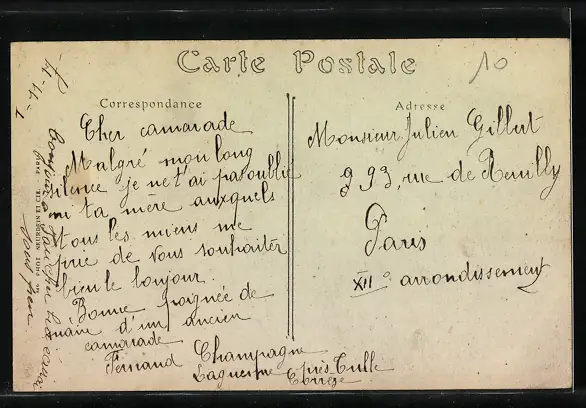 Carte Postale
10
Correspondance
Adresse
Cher camarade
Malgré mon long
silence je ne t'ai pas oublié
ni ta mère auxquels
tous les miens me
prie de vous souhaiter
bien le bonjour
Bonne poignée de
main d'un ancien
camarade
Fernand Champagne
Laguenne près Tulle
Corrèze
Monsieur Julien Gillert
93, rue de Reuilly
Paris
XII° arrondissement
PHOT. NEURDEIN ET CIE.